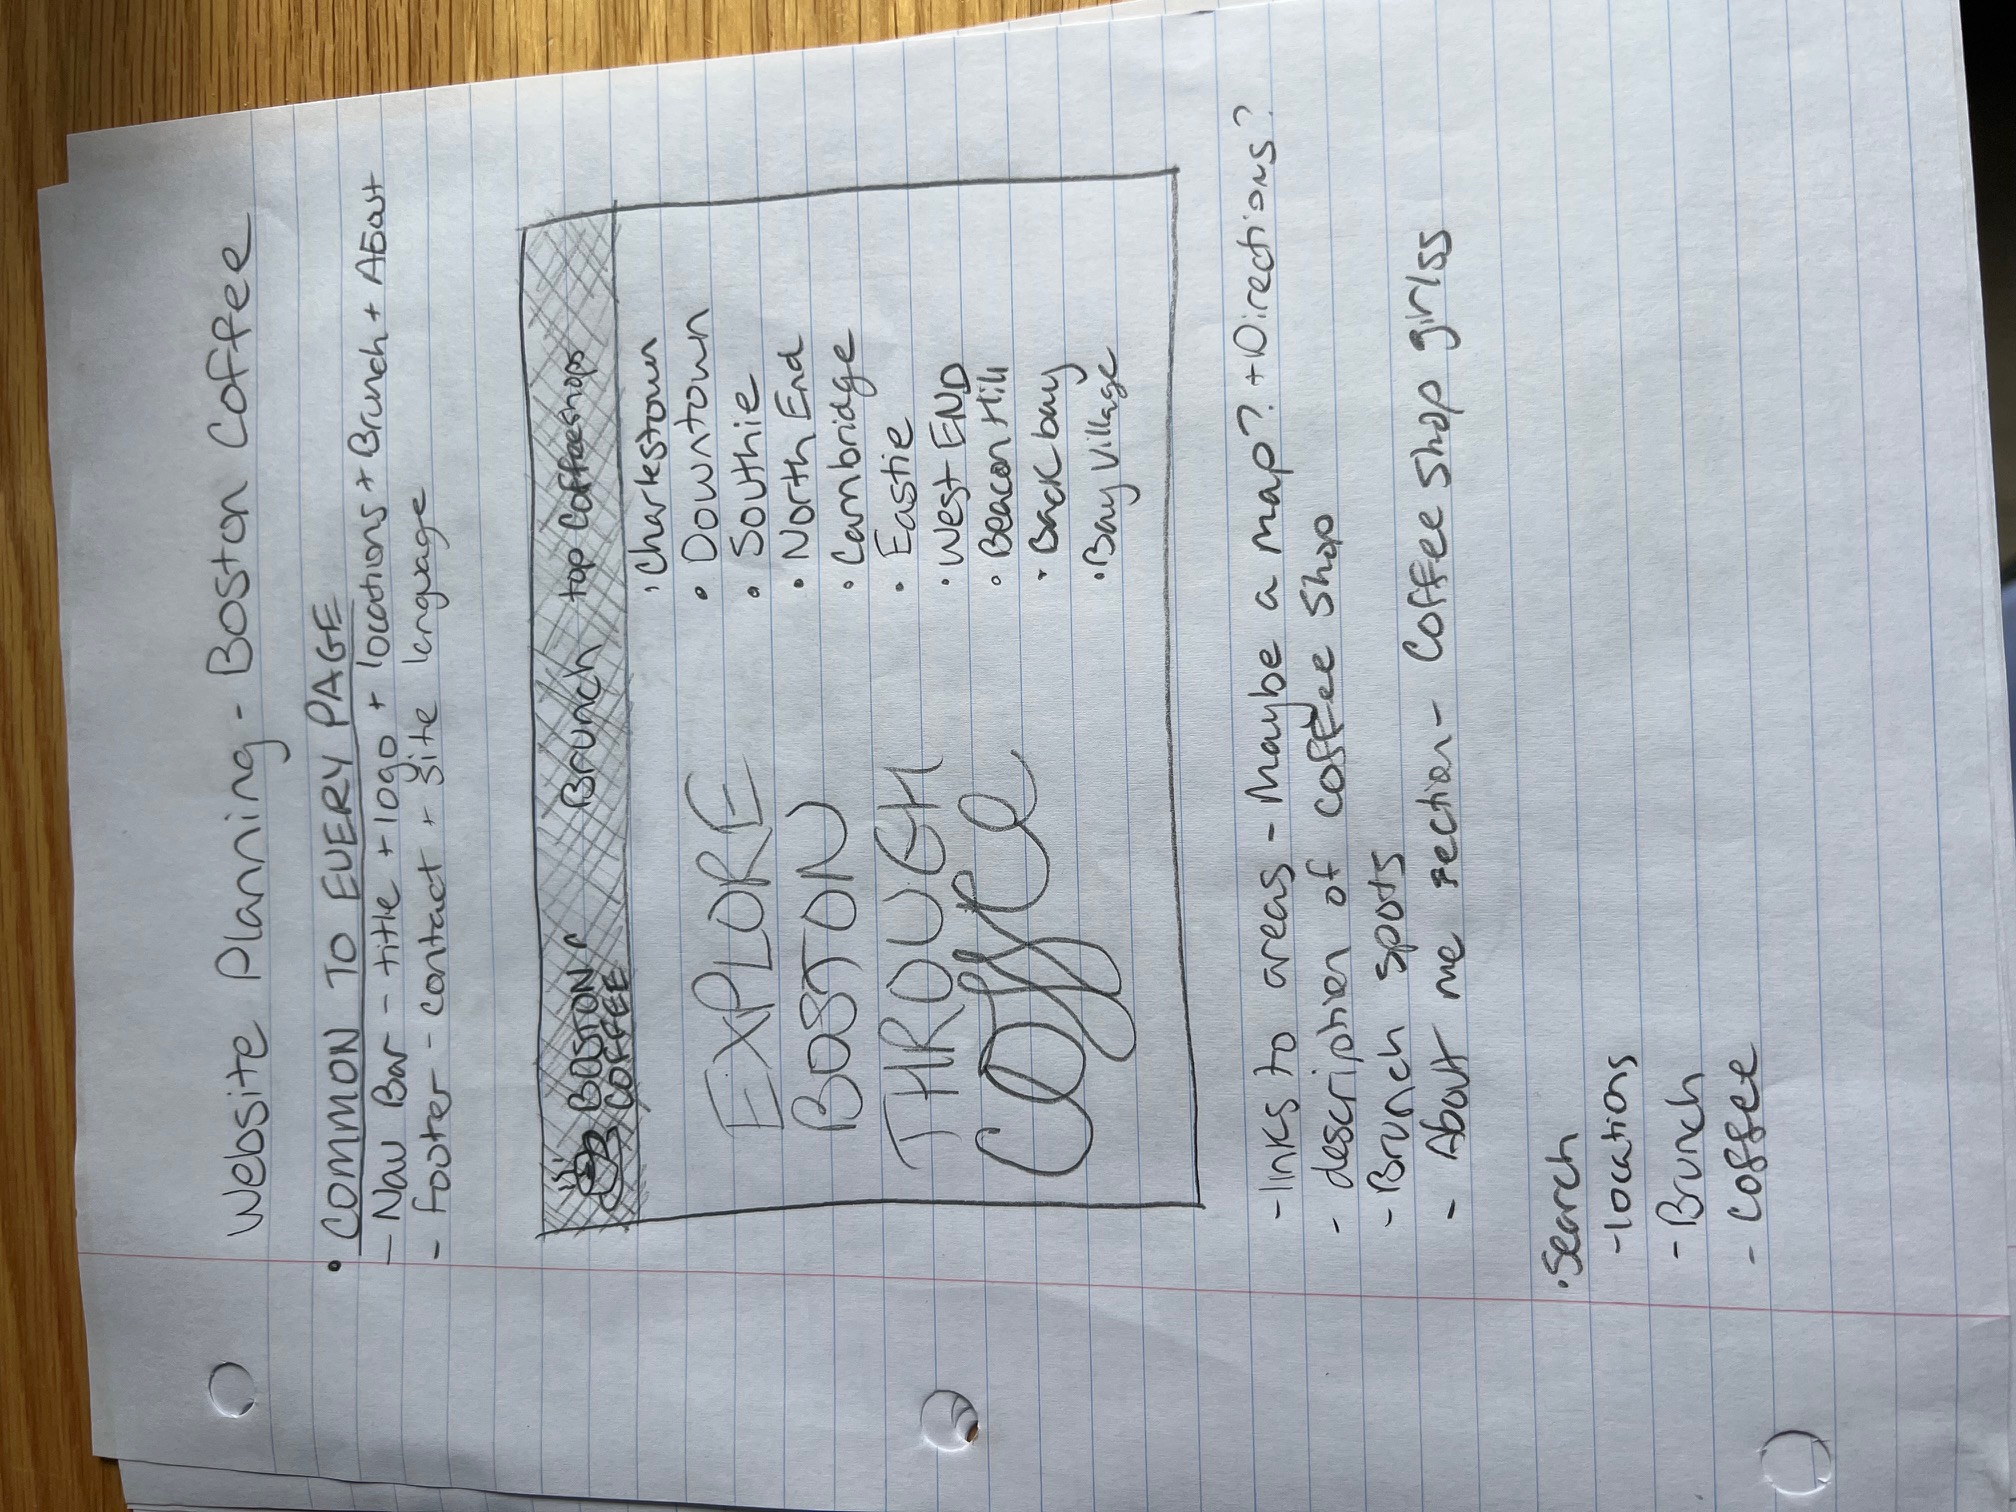 Website Planning - Boston Coffee
• COMMON TO EVERY PAGE
- Nav Bar - title + logo + locations + Brunch + About
- footer - contact + site language
BOSTON
COFFEE
Brunch
top Coffeeshops
• Charlestown
• Downtown
• Southie
• North End
• Cambridge
• Eastie
• West END
• Beacon Hill
• Back bay
• Bay Village
EXPLORE
BOSTON
THROUGH
Coffee
- links to areas - Maybe a map? + Directions?
- description of coffee Shop
- Brunch spots
- About me section - Coffee shop girlss
• Search
- locations
- Brunch
- Coffee